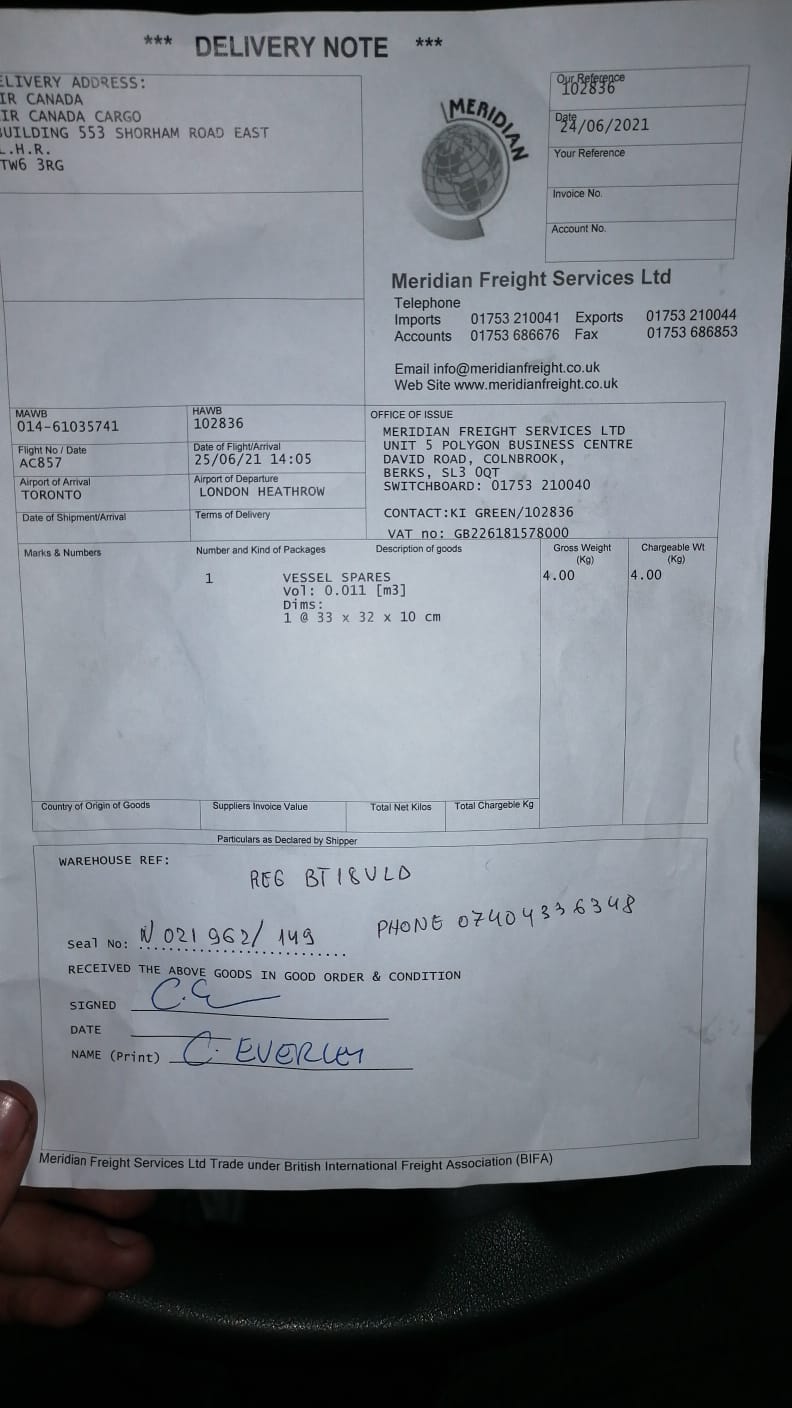 *** DELIVERY NOTE ***
ELIVERY ADDRESS:
IR CANADA
IR CANADA CARGO
UILDING 553 SHORHAM ROAD EAST
L.H.R.
TW6 3RG
MERIDIAN
Our Reference
102836
Date
24/06/2021
Your Reference
Invoice No.
Account No.
Meridian Freight Services Ltd
Telephone
Imports 01753 210041 Exports 01753 210044
Accounts 01753 686676 Fax 01753 686853
Email info@meridianfreight.co.uk
Web Site www.meridianfreight.co.uk
MAWB
014-61035741
HAWB
102836
Flight No / Date
AC857
Date of Flight/Arrival
25/06/21 14:05
Airport of Arrival
TORONTO
Airport of Departure
LONDON HEATHROW
Date of Shipment/Arrival
Terms of Delivery
OFFICE OF ISSUE
MERIDIAN FREIGHT SERVICES LTD
UNIT 5 POLYGON BUSINESS CENTRE
DAVID ROAD, COLNBROOK,
BERKS, SL3 0QT
SWITCHBOARD: 01753 210040
CONTACT:KI GREEN/102836
VAT no: GB226181578000
Marks & Numbers
Number and Kind of Packages
Description of goods
Gross Weight
(Kg)
Chargeable Wt
(Kg)
1 VESSEL SPARES 4.00 4.00
Vol: 0.011 [m3]
Dims:
1 @ 33 x 32 x 10 cm
Country of Origin of Goods
Suppliers Invoice Value
Total Net Kilos
Total Chargeble Kg
Particulars as Declared by Shipper
WAREHOUSE REF:
REG BT18VLD
Seal No: N021962/149
PHONE 07404336348
RECEIVED THE ABOVE GOODS IN GOOD ORDER & CONDITION
SIGNED
DATE
NAME (Print) C. EVERLEY
Meridian Freight Services Ltd Trade under British International Freight Association (BIFA)